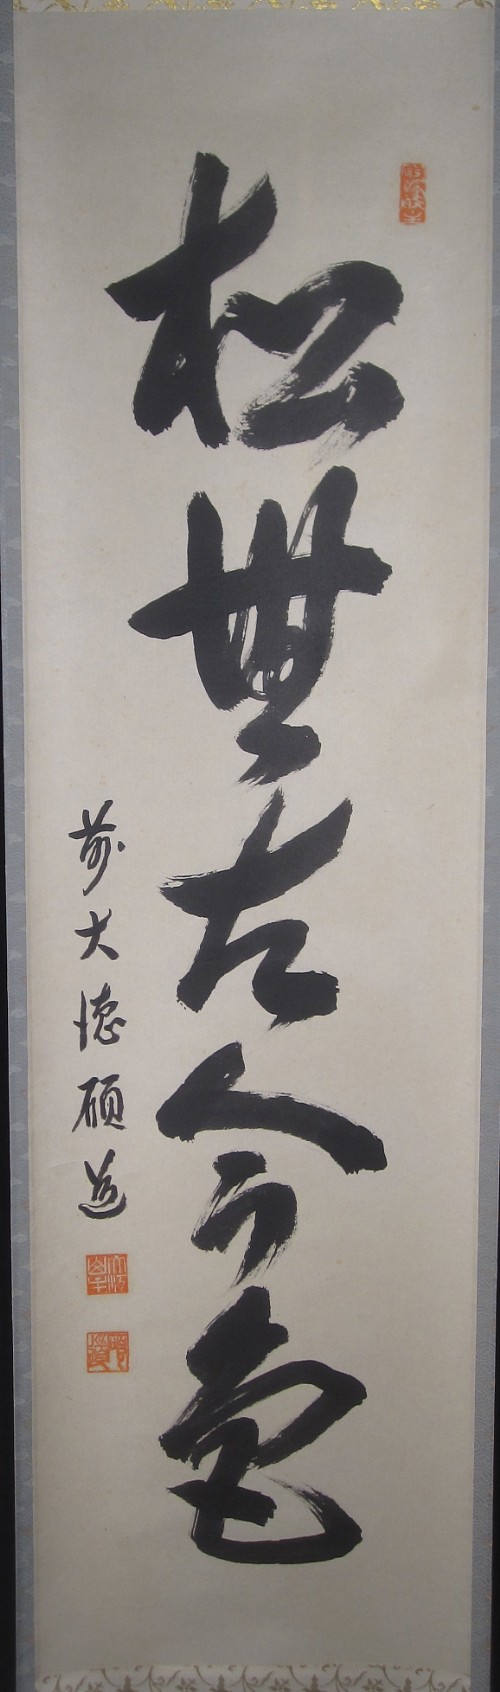 松無古今色
前大徳碩道